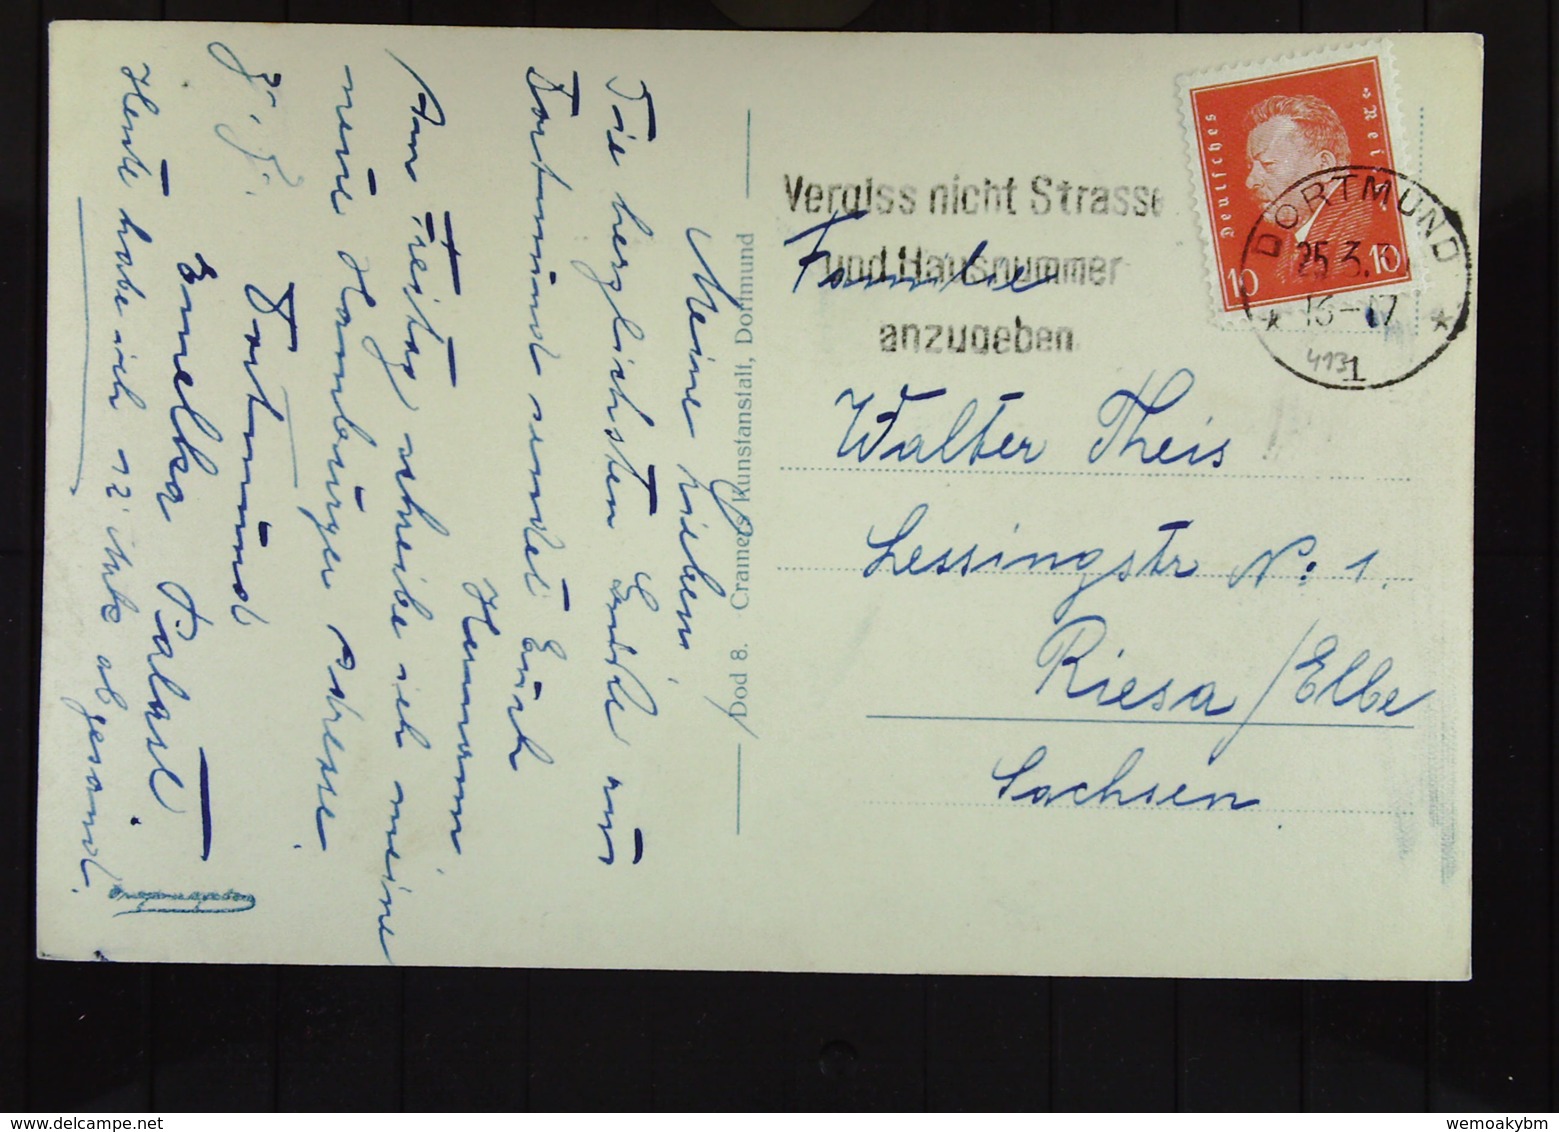 Meine Lieben,
Die herzlichsten Grüße aus
Dortmund sendet Euch
Hermann.
Am Freitag schreibe ich meine
neue Hamburger Adresse.
Z. Z.
Dortmund
Emelka Palast.
Heute habe ich 12 Mk abgesand.
Dod 8. Cramers Kunstanstalt, Dortmund
Vergiss nicht Strasse
und Hausnummer
anzugeben
Deutsches Rei
10 10
DORTMUND
25.3.
16-17
1
413
Familie
Walter Theis
Lessingstr N: 1.
Riesa/Elbe
Sachsen
www.delcampe.net
wemoakybm